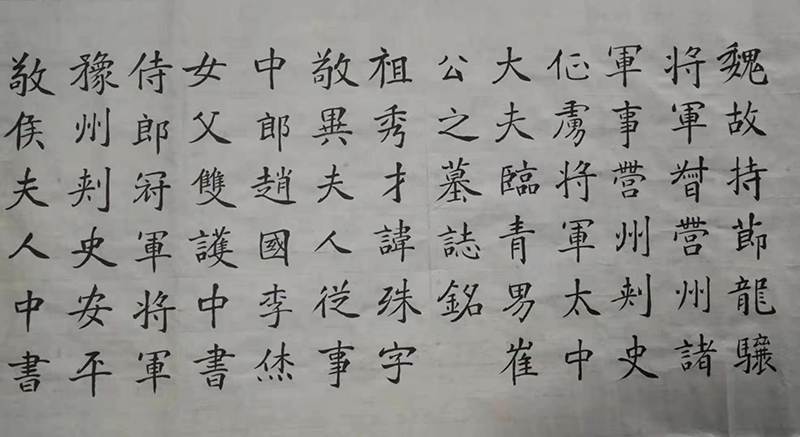 魏故持節龍驤
将軍督營州諸
軍事營州刾史
征虜将軍太中
大夫臨青男崔
公之墓誌銘
祖秀才諱殊字
敬異夫人從事
中郎趙國李烋
女父雙護中書
侍郎冠軍将軍
豫州刾史安平
敬侯夫人中書